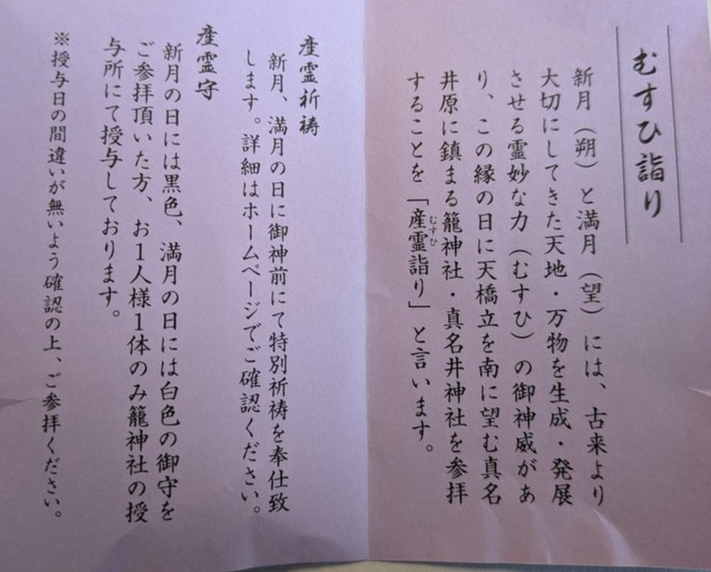 むすひ詣り
新月（朔）と満月（望）には、古来より
大切にしてきた天地・万物を生成・発展
させる霊妙な力（むすひ）の御神威があ
り、この縁の日に天橋立を南に望む真名
井原に鎮まる籠神社・真名井神社を参拝
することを「産霊詣り」と言います。
むすひ
産霊祈祷
新月、満月の日に御神前にて特別祈祷を奉仕致
します。詳細はホームページでご確認ください。
産霊守
新月の日には黒色、満月の日には白色の御守を
ご参拝頂いた方、お1人様1体のみ籠神社の授
与所にて授与しております。
※授与日の間違いが無いよう確認の上、ご参拝ください。